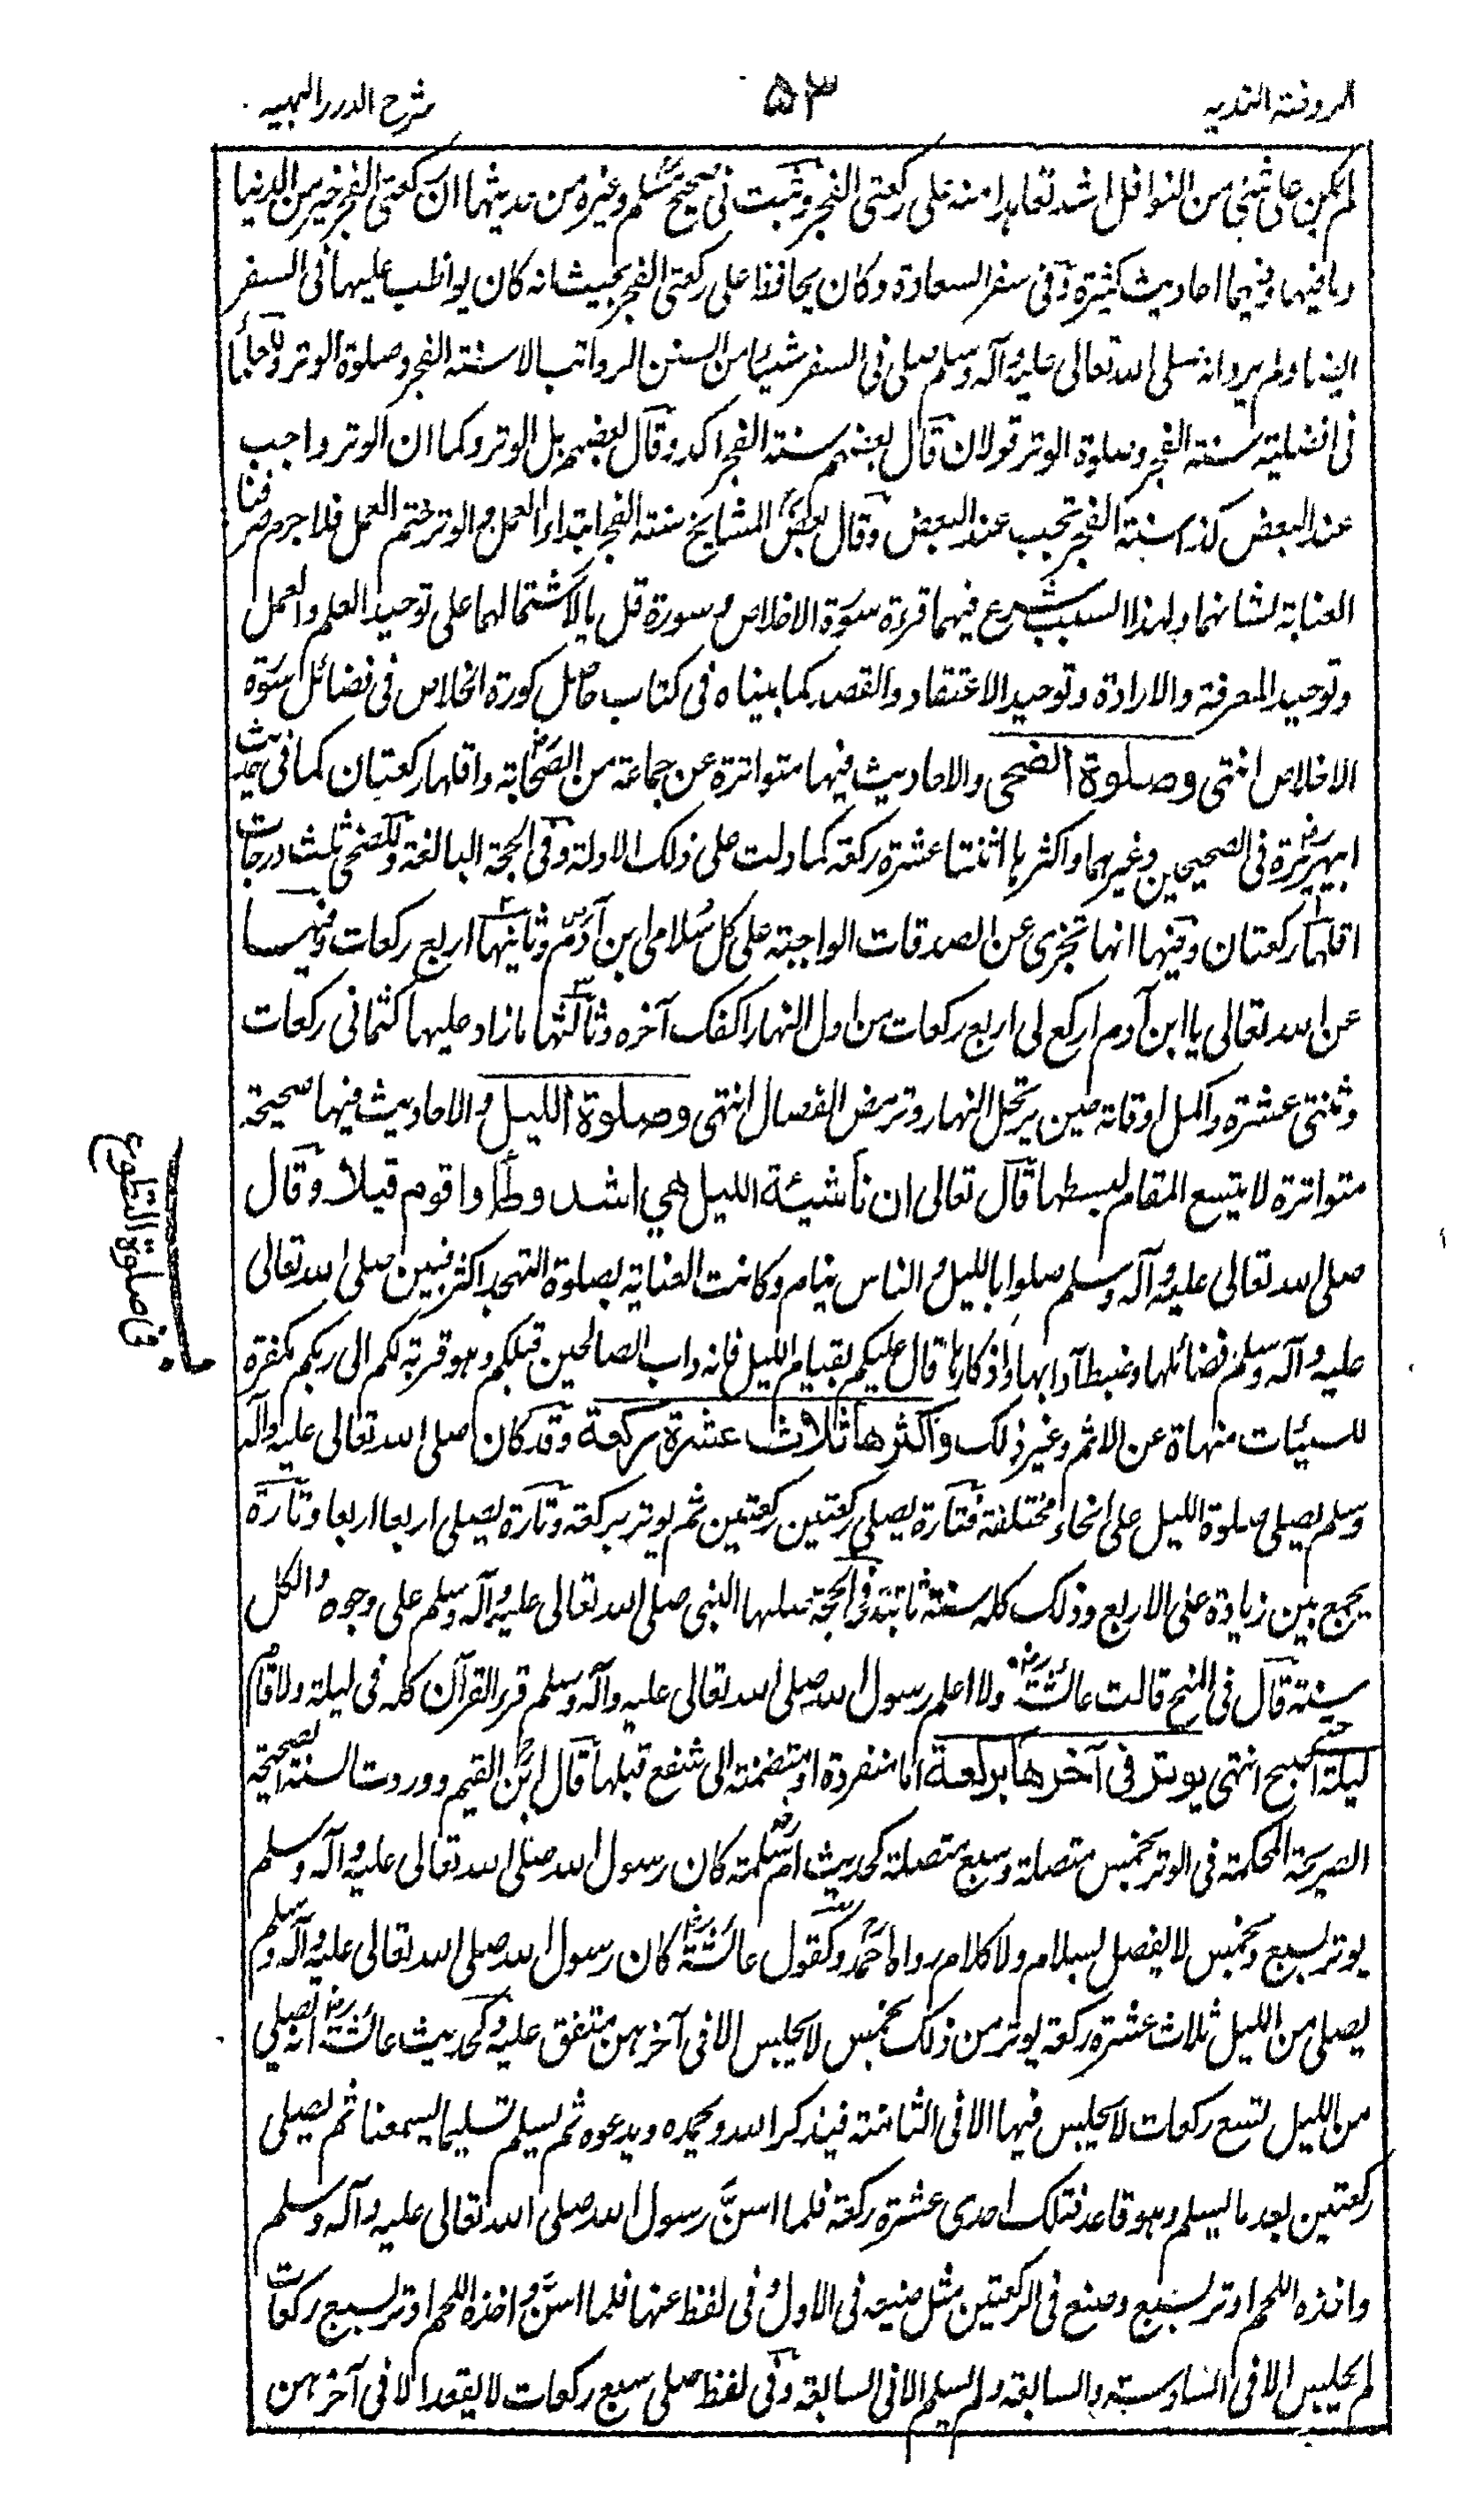 الروضة الندية
٥٣
شرح الدرر البهية
لم يكن على شئ من النوافل اشد تعاهدا منه على ركعتى الفجر وثبت فى صحيح مسلم وغيره من حديثها ان ركعتى الفجر خير من الدنيا
وما فيها وفيهما احاديث كثيرة وفى سفر السعادة وكان يحافظ على ركعتى الفجر بحيث انه كان يواظب عليها فى السفر
ايضا ولم يرو انه صلى الله تعالى عليه وآله وسلم صلى فى السفر شيئا من السنن الرواتب الا سنة الفجر وصلوة الوتر وللعلماء
فى افضلية سنة الفجر وصلوة الوتر قولان قال بعضهم سنة الفجر اكد وقال بعضهم بل الوتر وكما ان الوتر واجب
عند البعض كذا سنة الفجر تجب عند البعض وقال بعض المشايخ سنة الفجر ابتداء العمل والوتر ختم العمل فلا جرم صرفنا
العناية لشانهما ولهذا السبب شرع فيهما قراءة سورة الاخلاص وسورة قل يا لاشتمالهما على توحيد العلم والعمل
وتوحيد المعرفة والارادة وتوحيد الاعتقاد والقصد كما بيناه فى كتاب حاصل كورة الخلاص فى فضائل سورة
الاخلاص انتهى وصلوة الضحى والاحاديث فيها متواترة عن جماعة من الصحابة واقلها ركعتان كما فى حديث
ابيهريرة فى الصحيحين وغيرهما واكثرها اثنتا عشرة ركعة كما دلت على ذلك الادلة وفى الحجة البالغة وللضحى ثلث درجات
اقلها ركعتان وفيها انها تجزى عن الصدقات الواجبة على كل سلامى ابن آدم وثانيتها اربع ركعات وفيها
عن الله تعالى يا ابن آدم اركع لى اربع ركعات من اول النهار اكفك آخره وثالثتها ما زاد عليها كثمانى ركعات
وثنتى عشرة واكمل اوقاته حين يترحل النهار وترمض الفصال انتهى وصلوة الليل والاحاديث فيها صحيحة
متواترة لا يتسع المقام لبسطها قال تعالى ان ناشئة الليل هي اشد وطأ واقوم قيلا وقال
صلى الله تعالى عليه وآله وسلم صلوا بالليل والناس نيام وكانت العناية بصلوة التهجد اكثر فبين صلى الله تعالى
عليه وآله وسلم فضائلها وضبط آدابها واذكارها قال عليكم بقيام الليل فانه داب الصالحين قبلكم وهو قربة لكم الى ربكم مكفرة
للسيئات منهاة عن الاثم وغير ذلك واكثرها ثلاث عشرة ركعة وقد كان صلى الله تعالى عليه وآله
وسلم يصلى صلوة الليل على انحاء مختلفة فتارة يصلى ركعتين ركعتين ثم يوتر بركعة وتارة يصلى اربعا اربعا وتارة
يجمع بين زيادة على الاربع وذلك كله سنة ثابتة وفى الحجة صلها النبى صلى الله تعالى عليه وآله وسلم على وجوه والكل
سنة قال فى المنح قالت عائشة رض ولا اعلم رسول الله صلى الله تعالى عليه وآله وسلم قرء القرآن كله فى ليلة ولا قام
ليلة حتى اصبح انتهى يوتر فى آخرها بركعة اما منفردة او منضمة الى شفع قبلها قال ابن القيم ووردت السنة الصحيحة
الصريحة المحكمة فى الوتر بخمس متصلة وسبع متصلة كحديث ام سلمة كان رسول الله صلى الله تعالى عليه وآله وسلم
يوتر بسبع وبخمس لا يفصل بسلام ولا كلام رواه احمد وكقول عائشة رض كان رسول الله صلى الله تعالى عليه وآله وسلم
يصلى من الليل ثلاث عشرة ركعة يوتر من ذلك بخمس لا يجلس الا فى آخرهن متفق عليه وكحديث عائشة رض انه يصلي
من الليل تسع ركعات لا يجلس فيها الا فى الثامنة فيذكر الله ويحمده ويدعوه ثم يسلم تسليما يسمعنا ثم يصلى
ركعتين بعد ما يسلم وهو قاعد فتلك احدى عشرة ركعة فلما اسنّ رسول الله صلى الله تعالى عليه وآله وسلم
واخذه اللحم اوتر بسبع وصنع فى الركعتين مثل صنيعه فى الاول وفى لفظ عنها فلما اسنّ واخذه اللحم اوتر بسبع ركعات
لم يجلس الا فى السادسة والسابعة ولم يسلم الا فى السابعة وفى لفظ صلى سبع ركعات لا يقعد الا فى آخرهن
ف صلوة التطوع